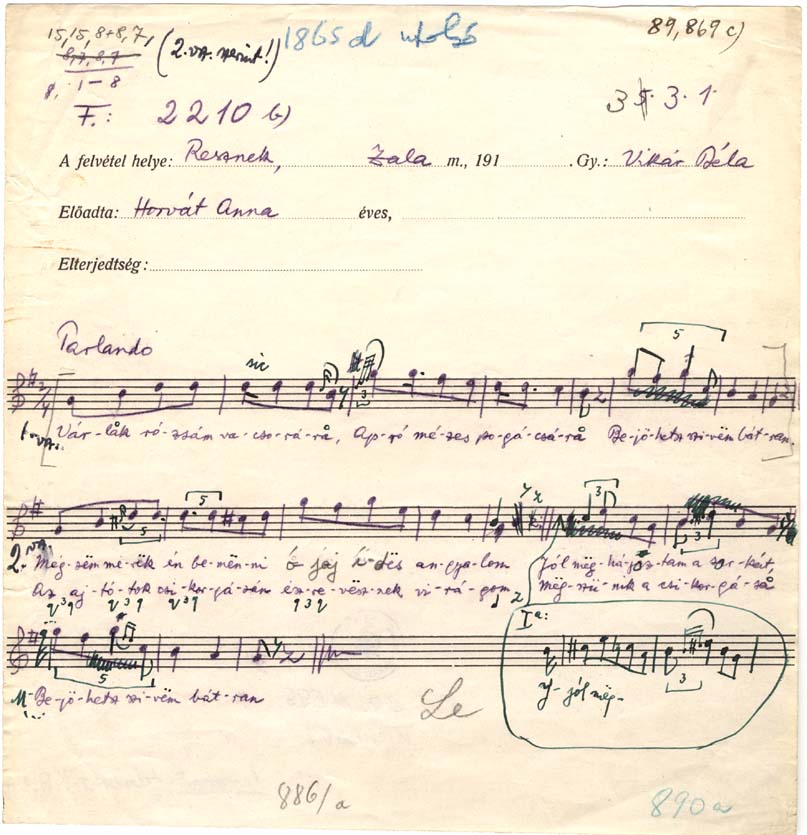 15, 15, 8+8, 7, (2. vsz. szerint!) 1865 d utolsó 89,869 c)
8, 7, 8, 7
1-8
F.: 2210 b) 3 5. 3. 1.
A felvétel helye: Resznek, Zala m., 191 . Gy.: Vikár Béla
Előadta: Horvát Anna éves,
Elterjedtség:
Parlando
5
sic
3
1. vsz. Vár-låk ró-zsám va-cso-rá-rå, Ap-ró mé-zes po-gá-csá-rå Be-jö-hetsz szi-vëm bát-ran
5 5 3 3
2. vsz. Még-sëm me-rëk én be-mën-ni ó jaj é-dës an-gya-lom Jól mëg-há-jaz-tam a sar-kát,
Az aj-tó-tok csi-kor-gá-sán ész-re-vësz-nek vi-rá-gom Mëg-szü-nik a csi-kor-gá-så
5
Be-jö-hetsz szi-vëm bát-ran
Ia:
3
Y-jól mëg-
Le
886/a 890a